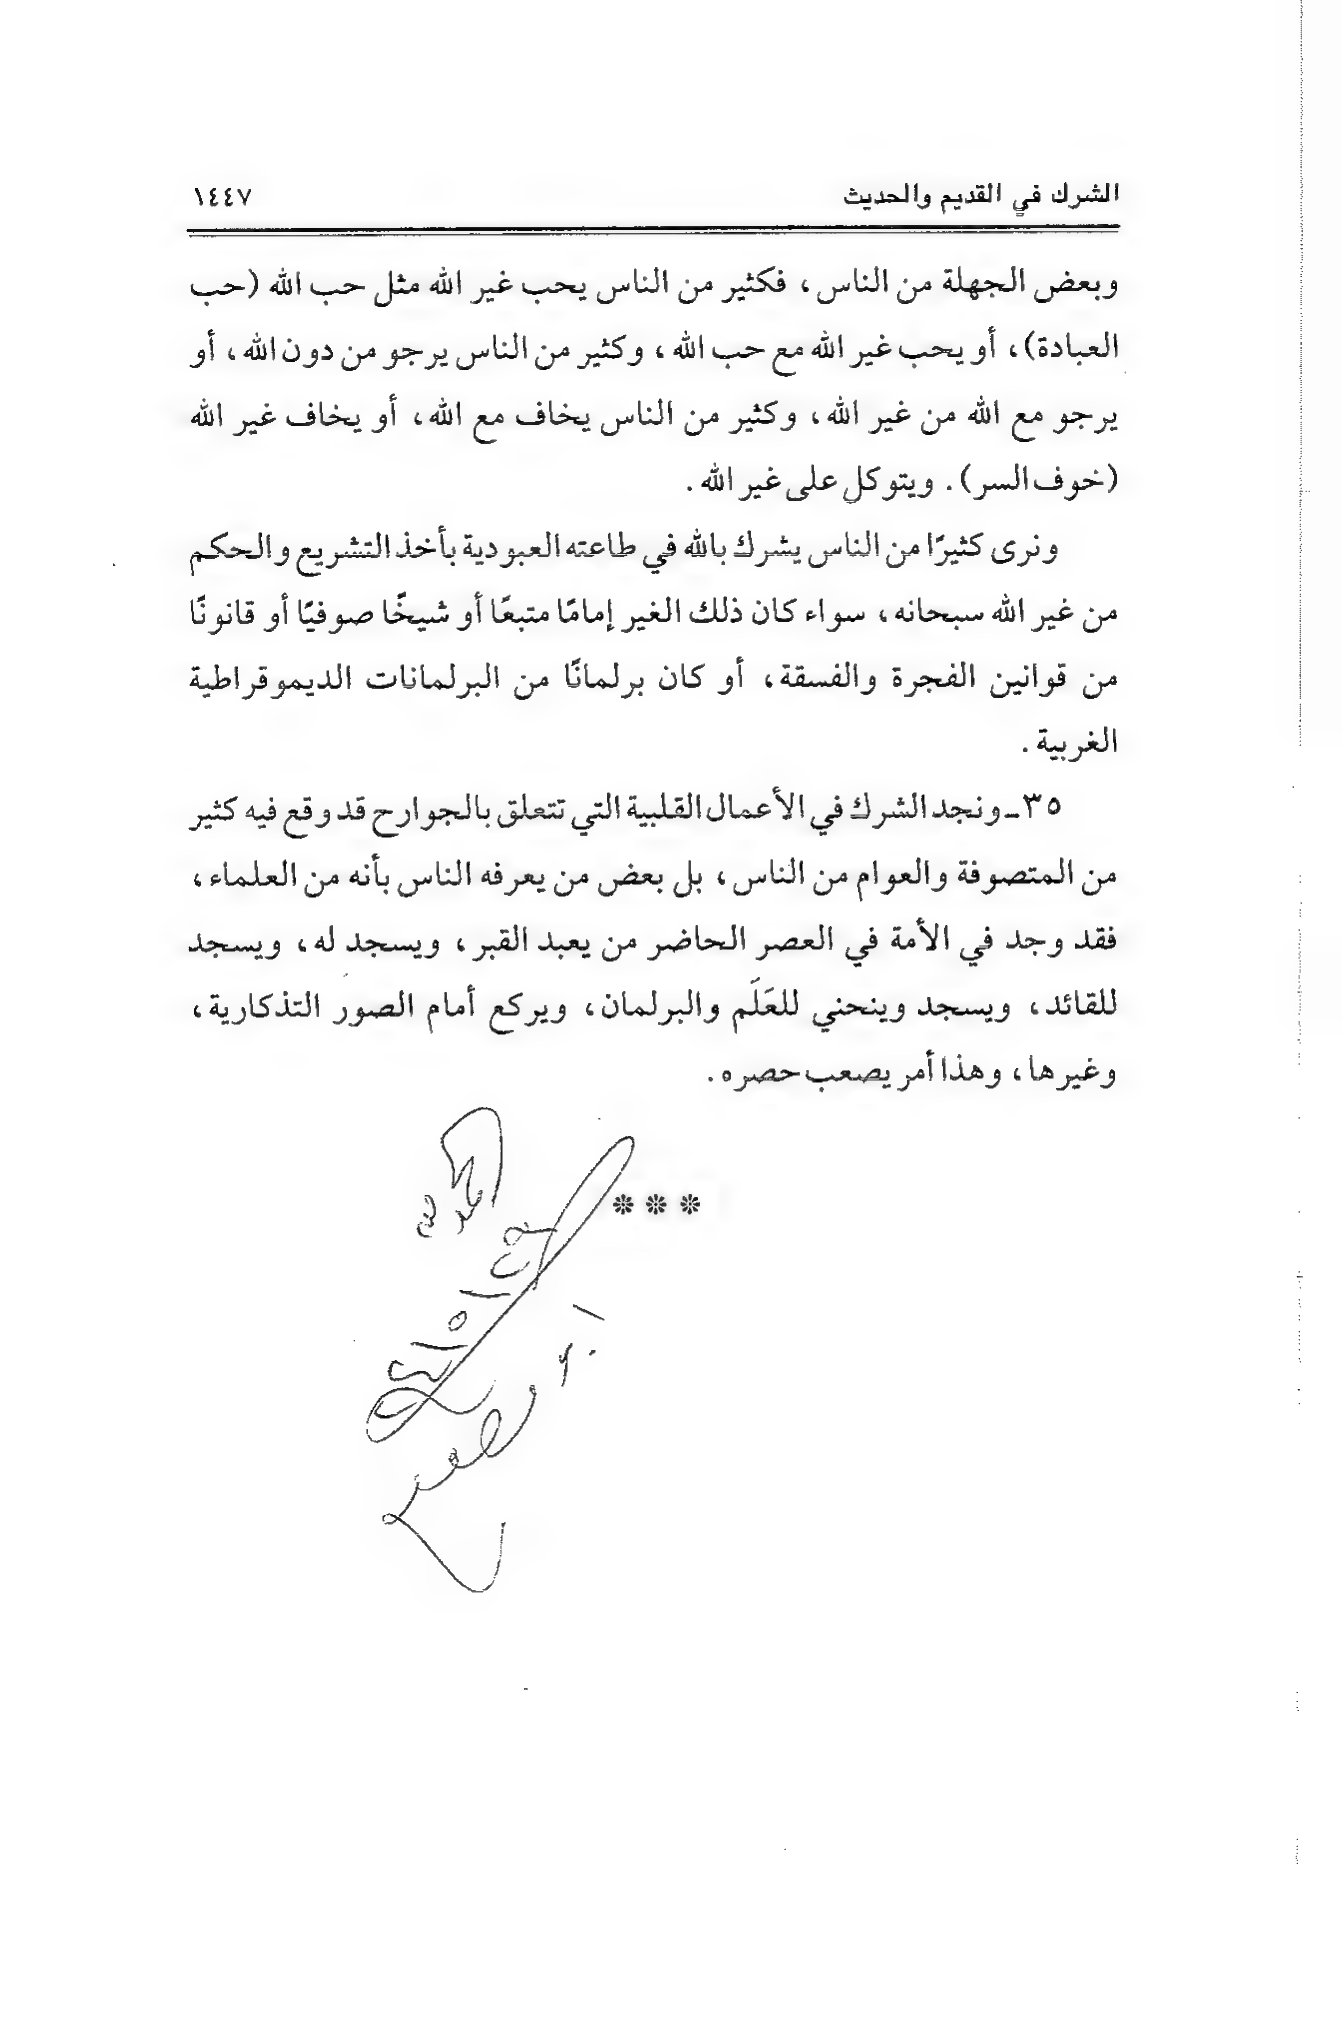 الشرك في القديم والحديث ١٤٤٧
وبعض الجهلة من الناس، فكثير من الناس يحب غير الله مثل حب الله (حب
العبادة)، أو يحب غير الله مع حب الله، وكثير من الناس يرجو من دون الله، أو
يرجو مع الله من غير الله، وكثير من الناس يخاف مع الله، أو يخاف غير الله
(خوف السر). ويتوكل على غير الله.
ونرى كثيرًا من الناس يشرك بالله في طاعته العبودية بأخذ التشريع والحكم
من غير الله سبحانه، سواء كان ذلك الغير إمامًا متبعًا أو شيخًا صوفيًا أو قانونًا
من قوانين الفجرة والفسقة، أو كان برلمانًا من البرلمانات الديموقراطية
الغربية.
٣٥ـ ونجد الشرك في الأعمال القلبية التي تتعلق بالجوارح قد وقع فيه كثير
من المتصوفة والعوام من الناس، بل بعض من يعرفه الناس بأنه من العلماء،
فقد وجد في الأمة في العصر الحاضر من يعبد القبر، ويسجد له، ويسجد
للقائد، ويسجد وينحني للعَلَم والبرلمان، ويركع أمام الصور التذكارية،
وغيرها، وهذا أمر يصعب حصره.
الحمد لله
* * *